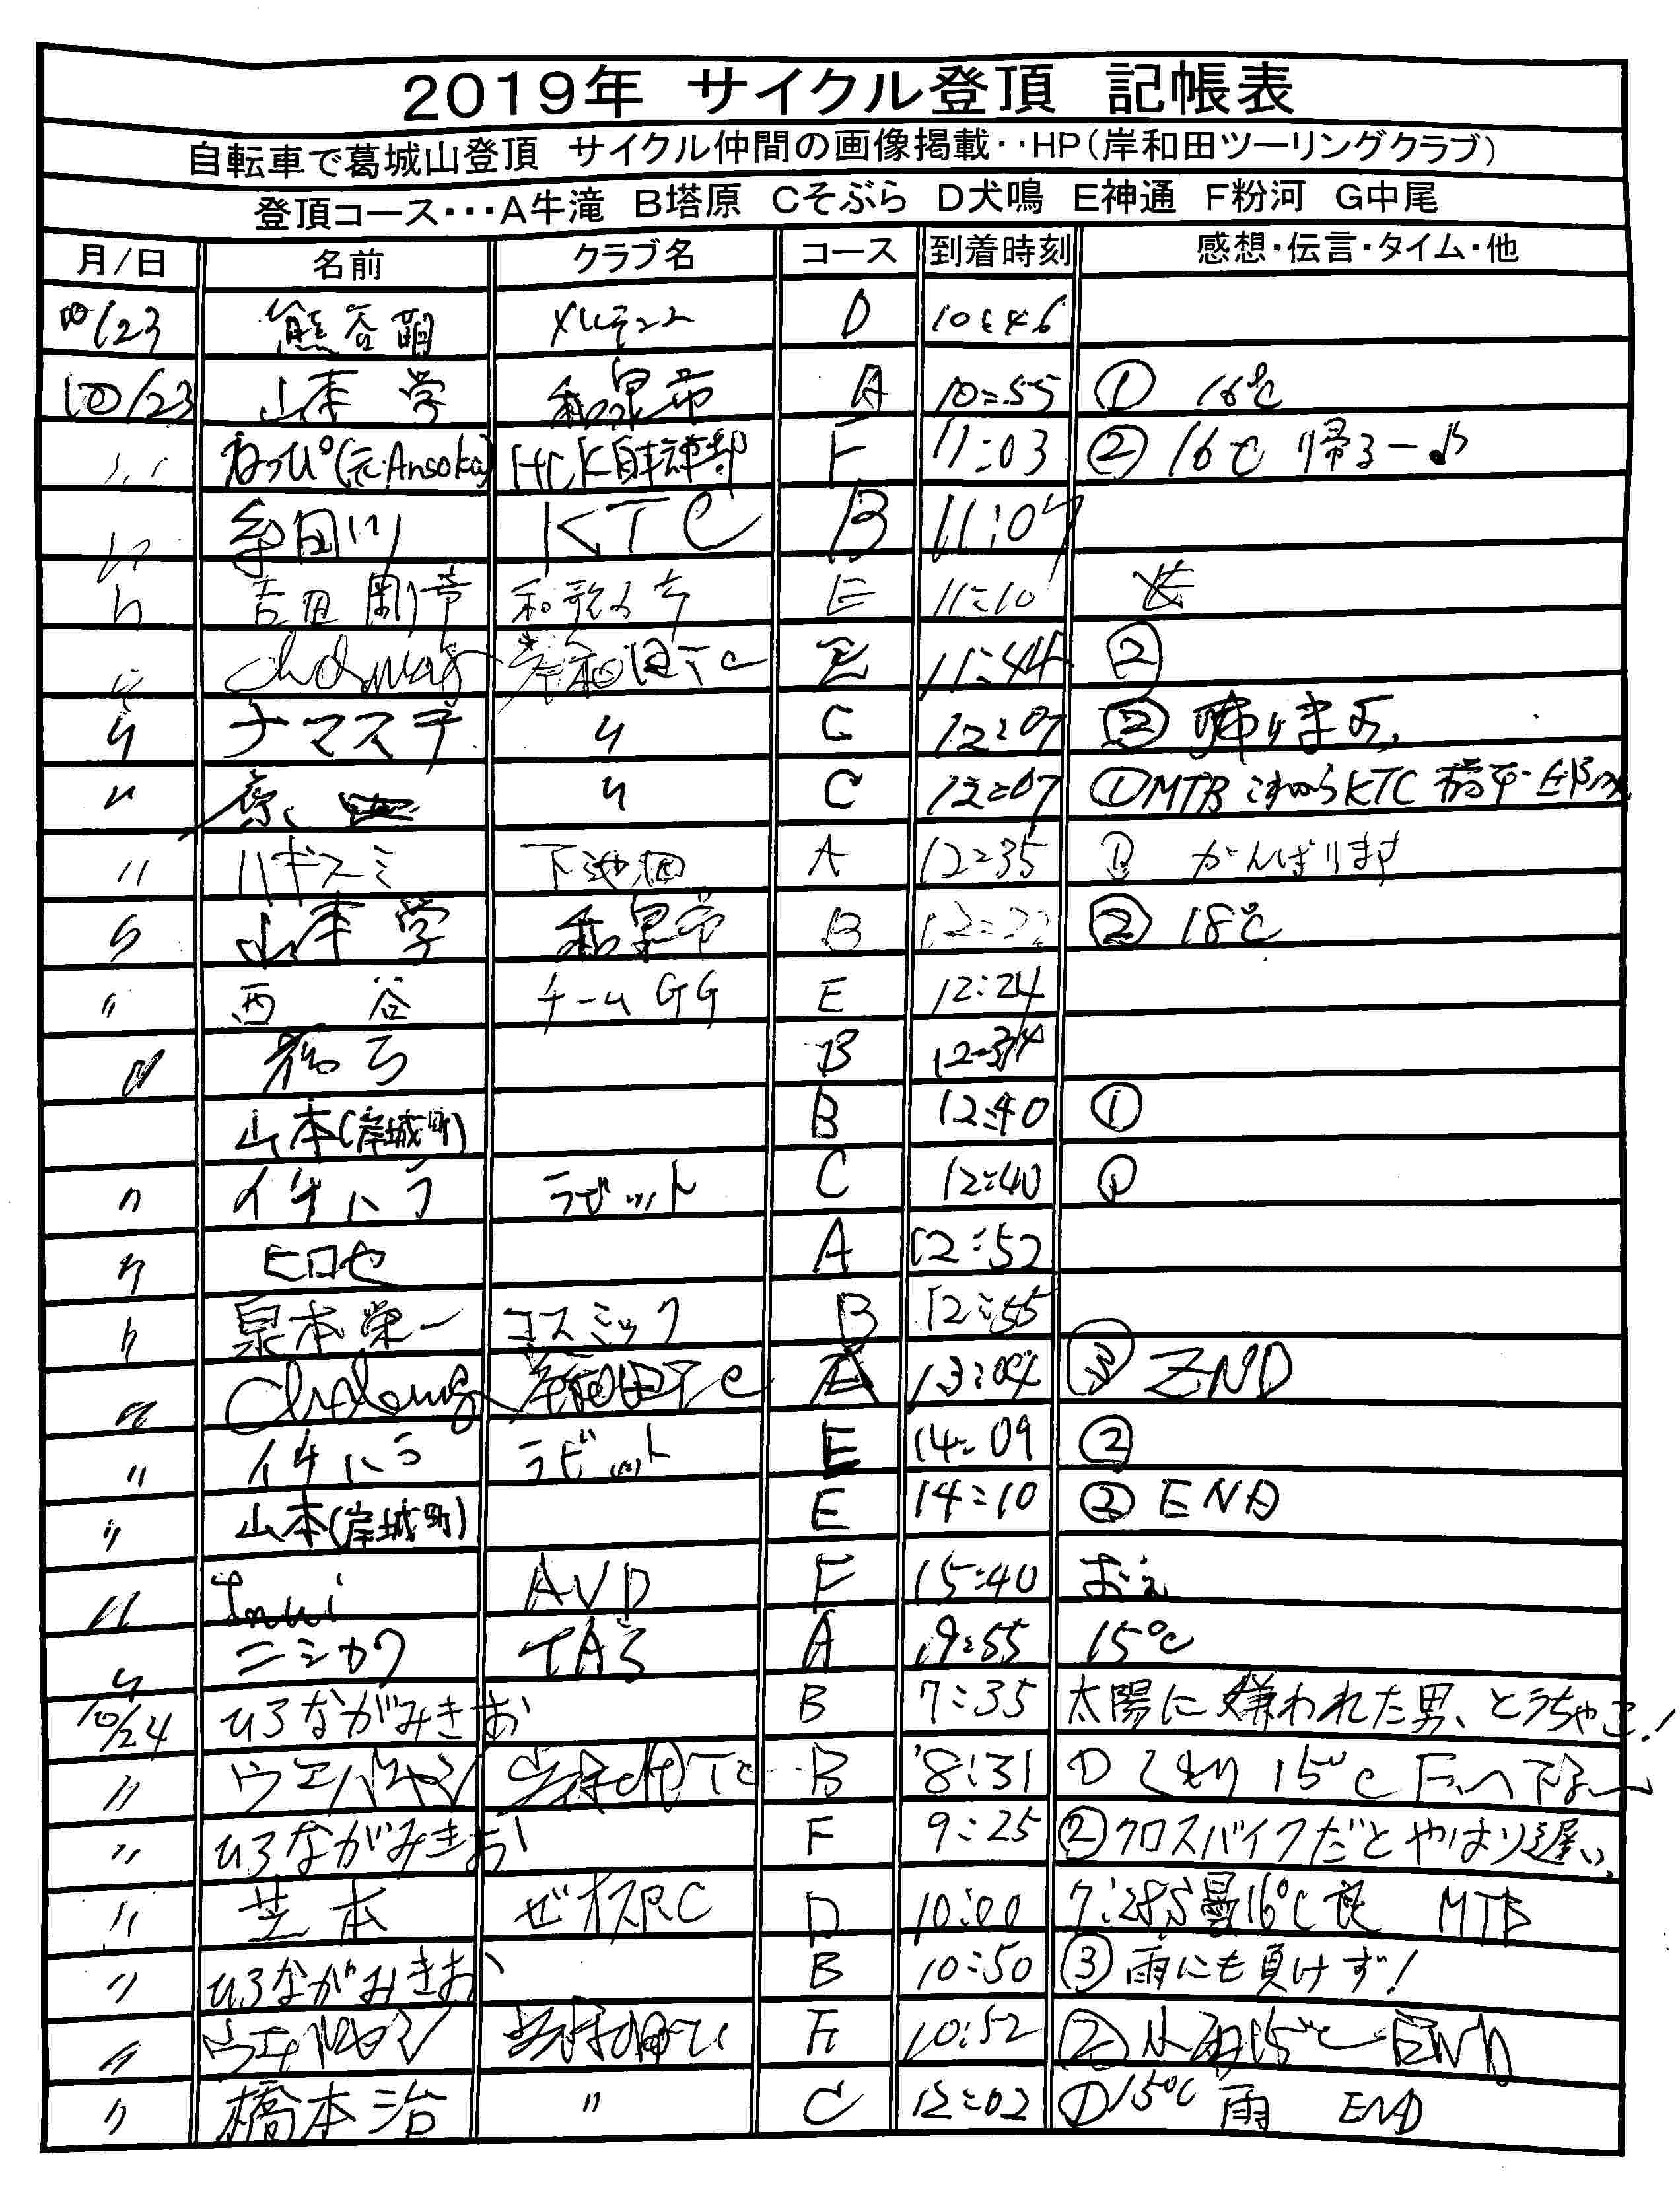 2019年 サイクル登頂 記帳表
自転車で葛城山登頂 サイクル仲間の画像掲載‥HP(岸和田ツーリングクラブ)
登頂コース・・・A牛滝 B塔原 Cそぶら D犬鳴 E神通 F粉河 G中尾
月/日 名前 クラブ名 コース 到着時刻 感想・伝言・タイム・他
10/23 熊谷 D 10:46
10/23 山本 学 和泉市 A 10:55 ① 16℃
〃 ねっぴ(元Ansoka) HCK自転車部 F 11:03 ② 16℃ 帰るー♪
〃 牟田川 KTC B 11:07
〃 吉田 剛章 E 11:10
〃 岸和田TC E 11:44 ②
〃 ナマステ 〃 C 12:07 ② 帰ります
〃 〃 C 12:07 ①MTB これからKTC
〃 ハギスミ 下池田 A 12:35 ① がんばります
〃 山本 学 和泉市 B ② 18℃
〃 西 谷 チームGG E 12:24
〃 B 12:34
山本(岸城町) B 12:40 ①
〃 イチハラ ラビット C 12:40 ①
〃 ヒロセ A 12:52
〃 泉本栄一 コスミック B 12:55
〃 岸和田TC 13:04 ③ END
〃 イチハラ ラビット E 14:09 ②
〃 山本(岸城町) E 14:10 ② END
〃 Inui AVD F 15:40
〃 ニシカワ TAS A 19:55 15℃
10/24 ひろながみきお B 7:35 太陽に嫌われた男、とうちゃこ!
〃 B 8:31 ① くもり 15℃
〃 ひろながみきお F 9:25 ②クロスバイクだとやはり遅い。
〃 芝本 ゼオスRC D 10:00 16℃ MTB
〃 ひろながみきお B 10:50 ③雨にも負けず!
〃 F 10:52 ②小雨15℃ END
〃 橋本治 〃 C 12:02 ①15℃ 雨 END